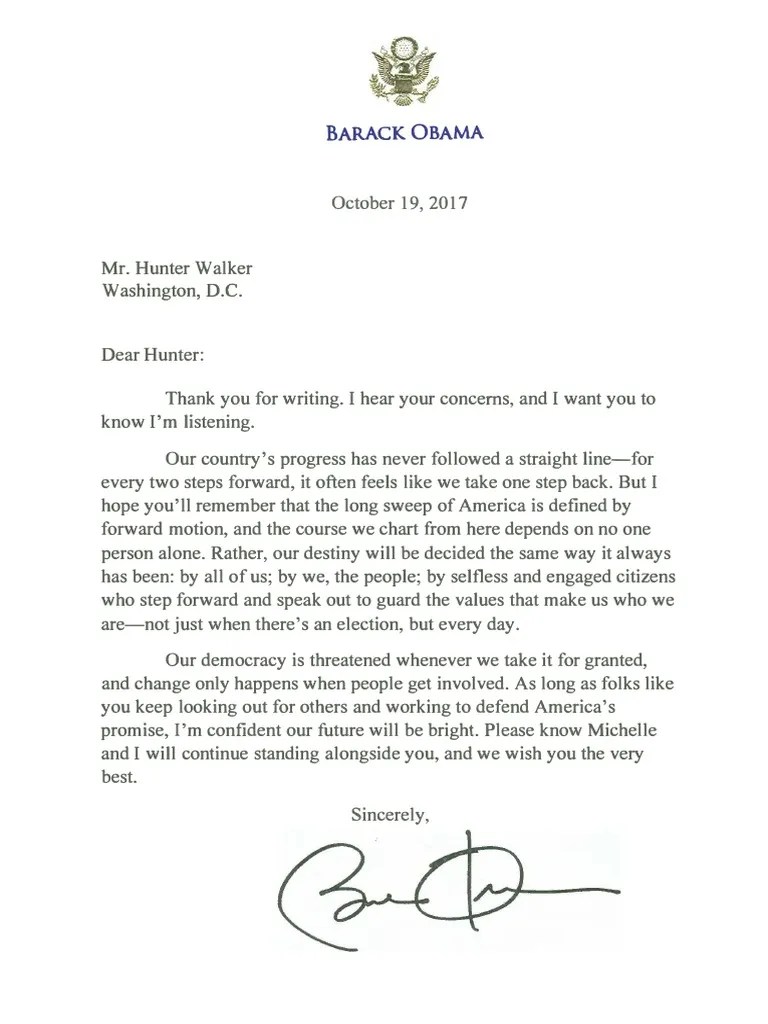 BARACK OBAMA
October 19, 2017
Mr. Hunter Walker
Washington, D.C.
Dear Hunter:
Thank you for writing. I hear your concerns, and I want you to
know I'm listening.
Our country's progress has never followed a straight line—for
every two steps forward, it often feels like we take one step back. But I
hope you'll remember that the long sweep of America is defined by
forward motion, and the course we chart from here depends on no one
person alone. Rather, our destiny will be decided the same way it always
has been: by all of us; by we, the people; by selfless and engaged citizens
who step forward and speak out to guard the values that make us who we
are—not just when there's an election, but every day.
Our democracy is threatened whenever we take it for granted,
and change only happens when people get involved. As long as folks like
you keep looking out for others and working to defend America's
promise, I'm confident our future will be bright. Please know Michelle
and I will continue standing alongside you, and we wish you the very
best.
Sincerely,